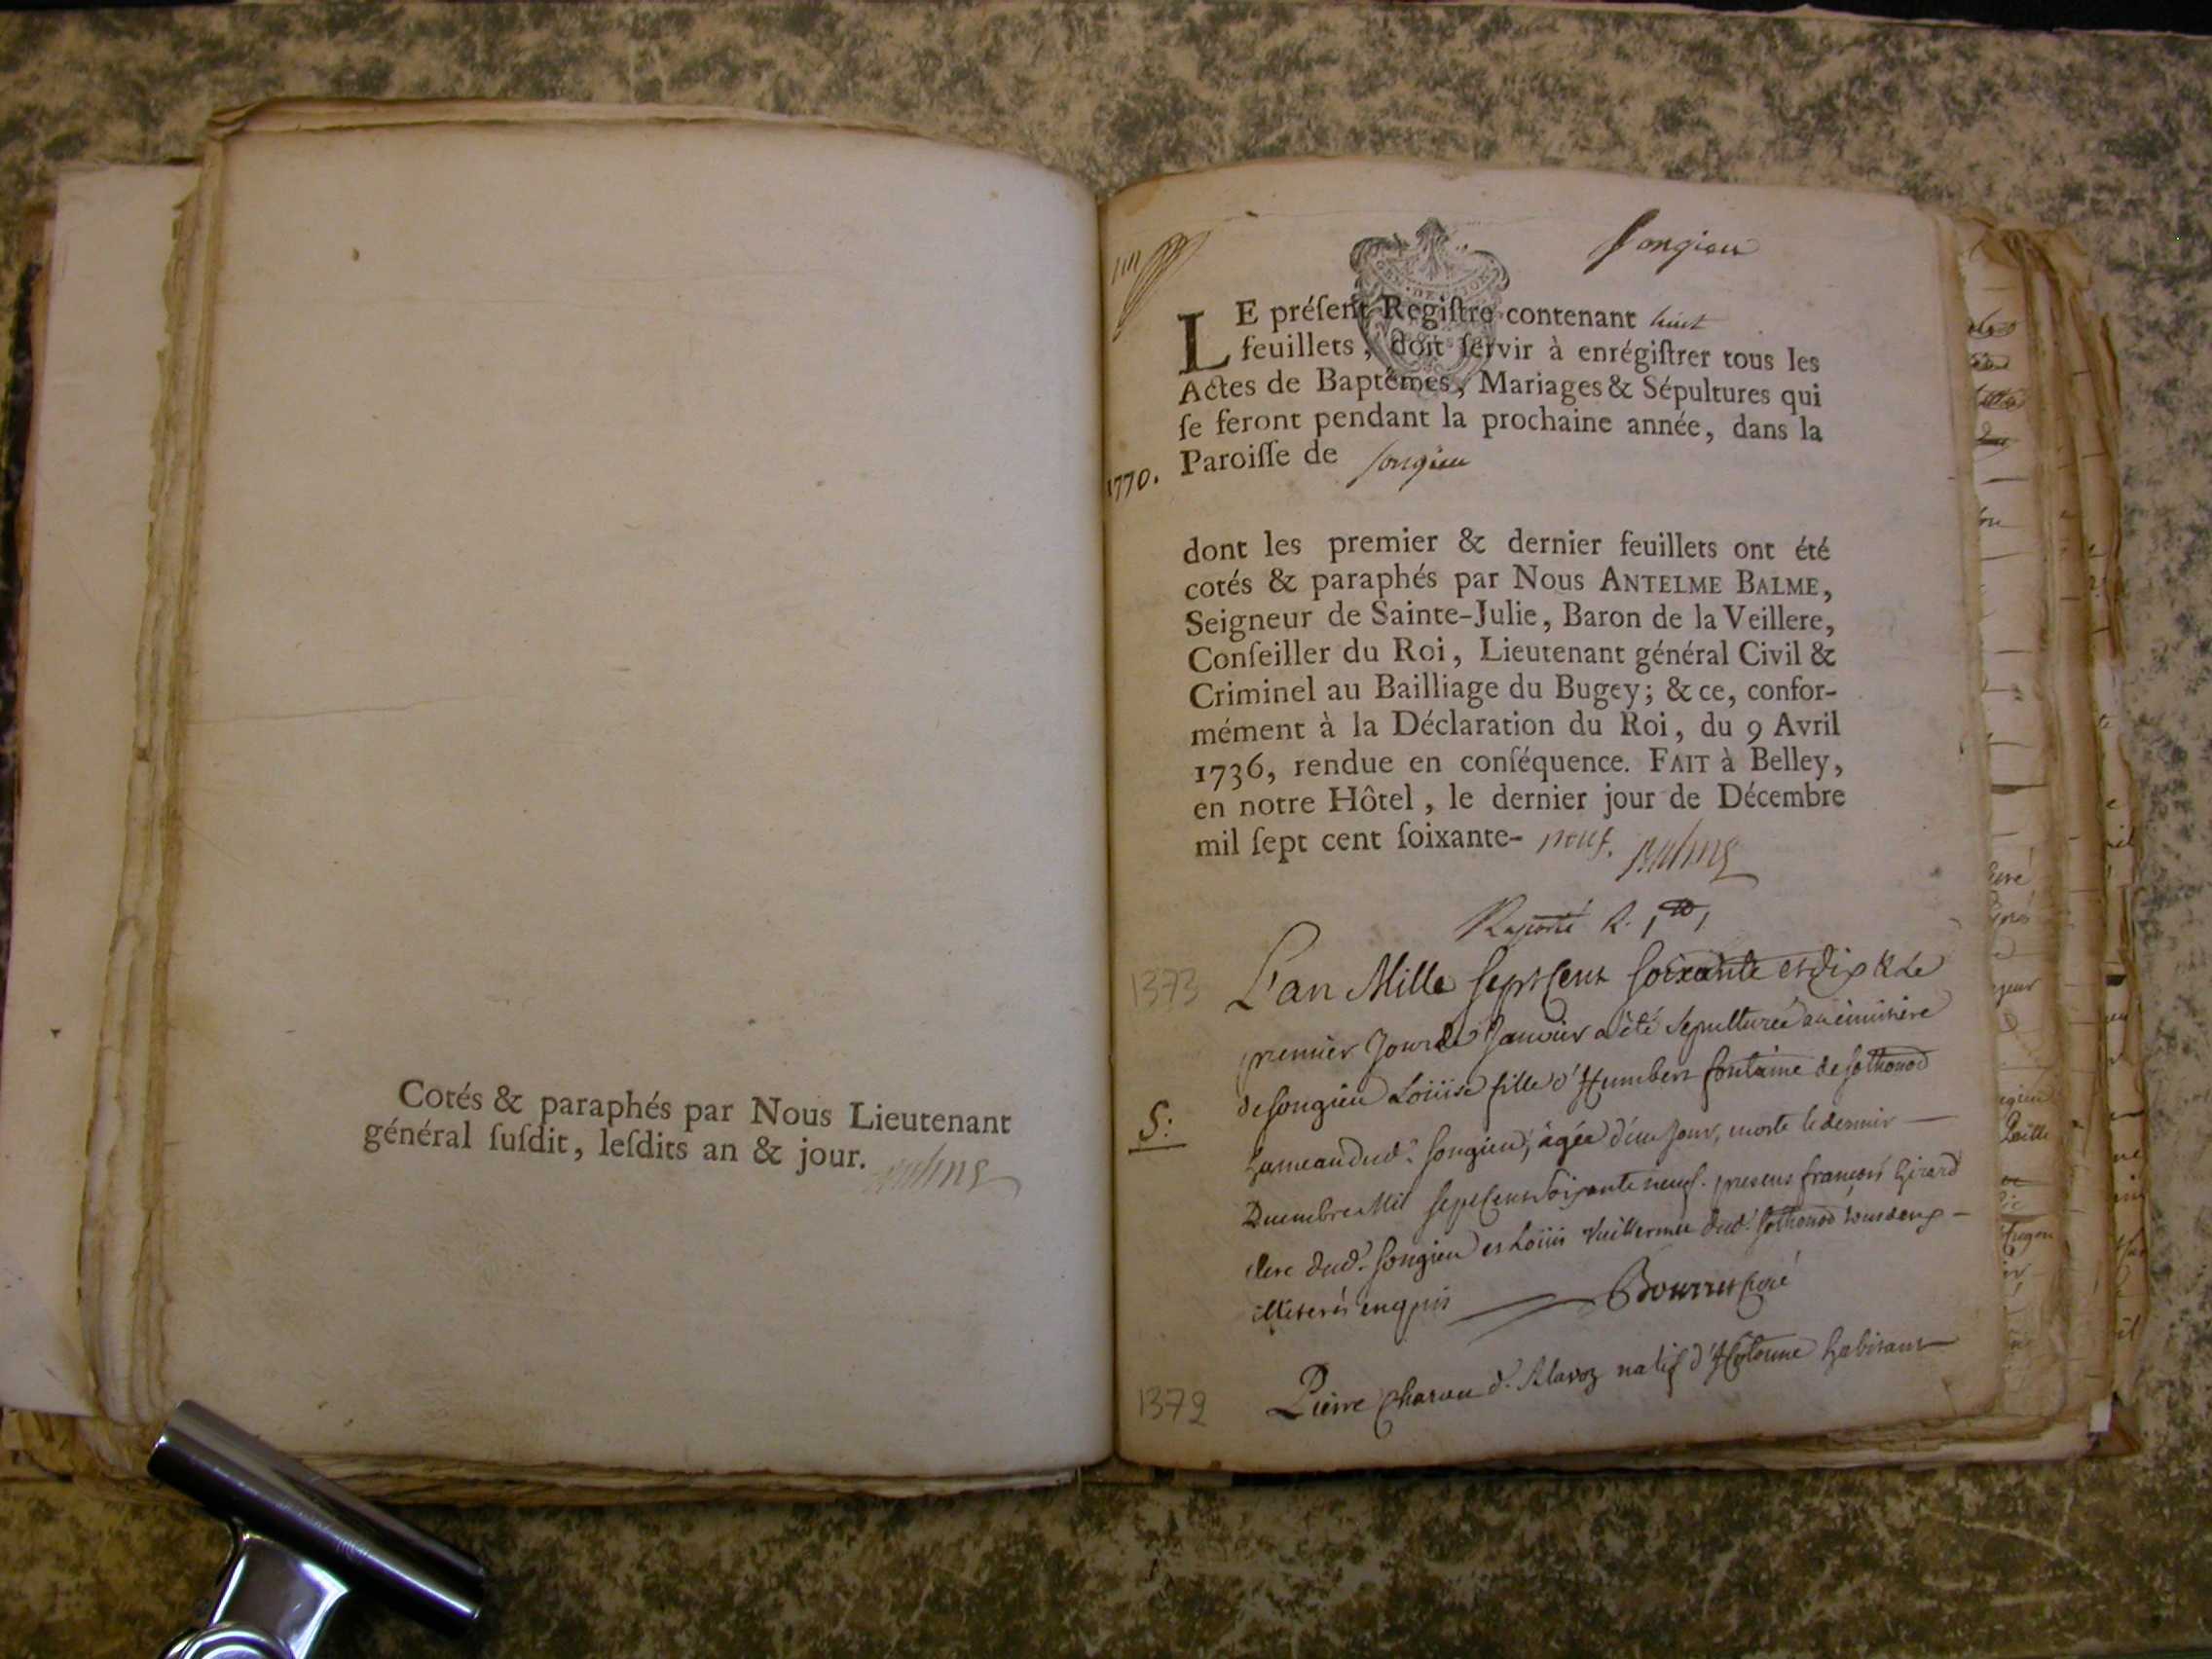 Cotés & paraphés par Nous Lieutenant
général ſuſdit, leſdits an & jour.
Balme
Songieu
LE préſent Regiſtre contenant huit
feuillets, doit ſervir à enrégiſtrer tous les
Actes de Baptêmes, Mariages & Sépultures qui
ſe feront pendant la prochaine année, dans la
Paroiſſe de Songieu
1770.
dont les premier & dernier feuillets ont été
cotés & paraphés par Nous ANTELME BALME,
Seigneur de Sainte-Julie, Baron de la Veillere,
Conſeiller du Roi, Lieutenant général Civil &
Criminel au Bailliage du Bugey; & ce, confor-
mément à la Déclaration du Roi, du 9 Avril
1736, rendue en conſéquence. FAIT à Belley,
en notre Hôtel, le dernier jour de Décembre
mil ſept cent ſoixante- neuf. Balme
1373
L'an Mille Sept Cent Soixante et dix & Le
premier Jour de Janvier a été sepulturée au cimitière
de Songieu Loüise fille d'Humbert fontaine de Sothonod
S:
hameau dud. Songieu, âgée d'un Jour, morte le dernier
Decembre Mil Sept Cent Soixante neuf. presens françois Girard
clerc dud. Songieu et Loüis Vuillermet dud. Sothonod tous deux
illiterés enquis Bourret Curé
1372
Pierre Charvu d. Alavoz natif d'Hotonne habitant